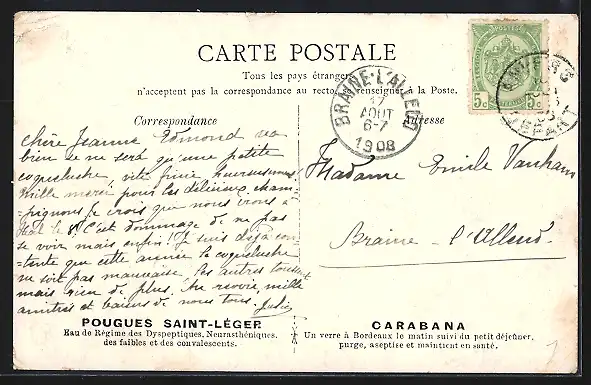 CARTE POSTALE
Tous les pays étrangers
n'acceptent pas la correspondance au recto, se renseigner à la Poste.
Correspondance
Adresse
BRAINE-L'ALLEUD
17
AOUT
6-7
1908
ANVERS
DÉPART
5c 5c
Chère Jeanne Edmond va
bien ce ne sera qu'une petite
coqueluche, vite finie heureusement
Mille merci pour les délicieux cham-
pignons je crois que nous irons à
le 8. C'est dommage de ne pas
se voir mais enfin! Je suis déjà con-
tente que cette année la coqueluche
ne soit pas mauvaise. Les autres toussent
mais rien de plus. Au revoir, mille
amitiés et baisers de nous tous. Julie
Madame Emile Vanham
Braine - l'Alleud.
POUGUES SAINT-LÉGER
Eau de Régime des Dyspeptiques, Neurasthéniques,
des faibles et des convalescents.
CARABANA
Un verre à Bordeaux le matin suivi du petit déjeûner,
purge, aseptise et maintient en santé.